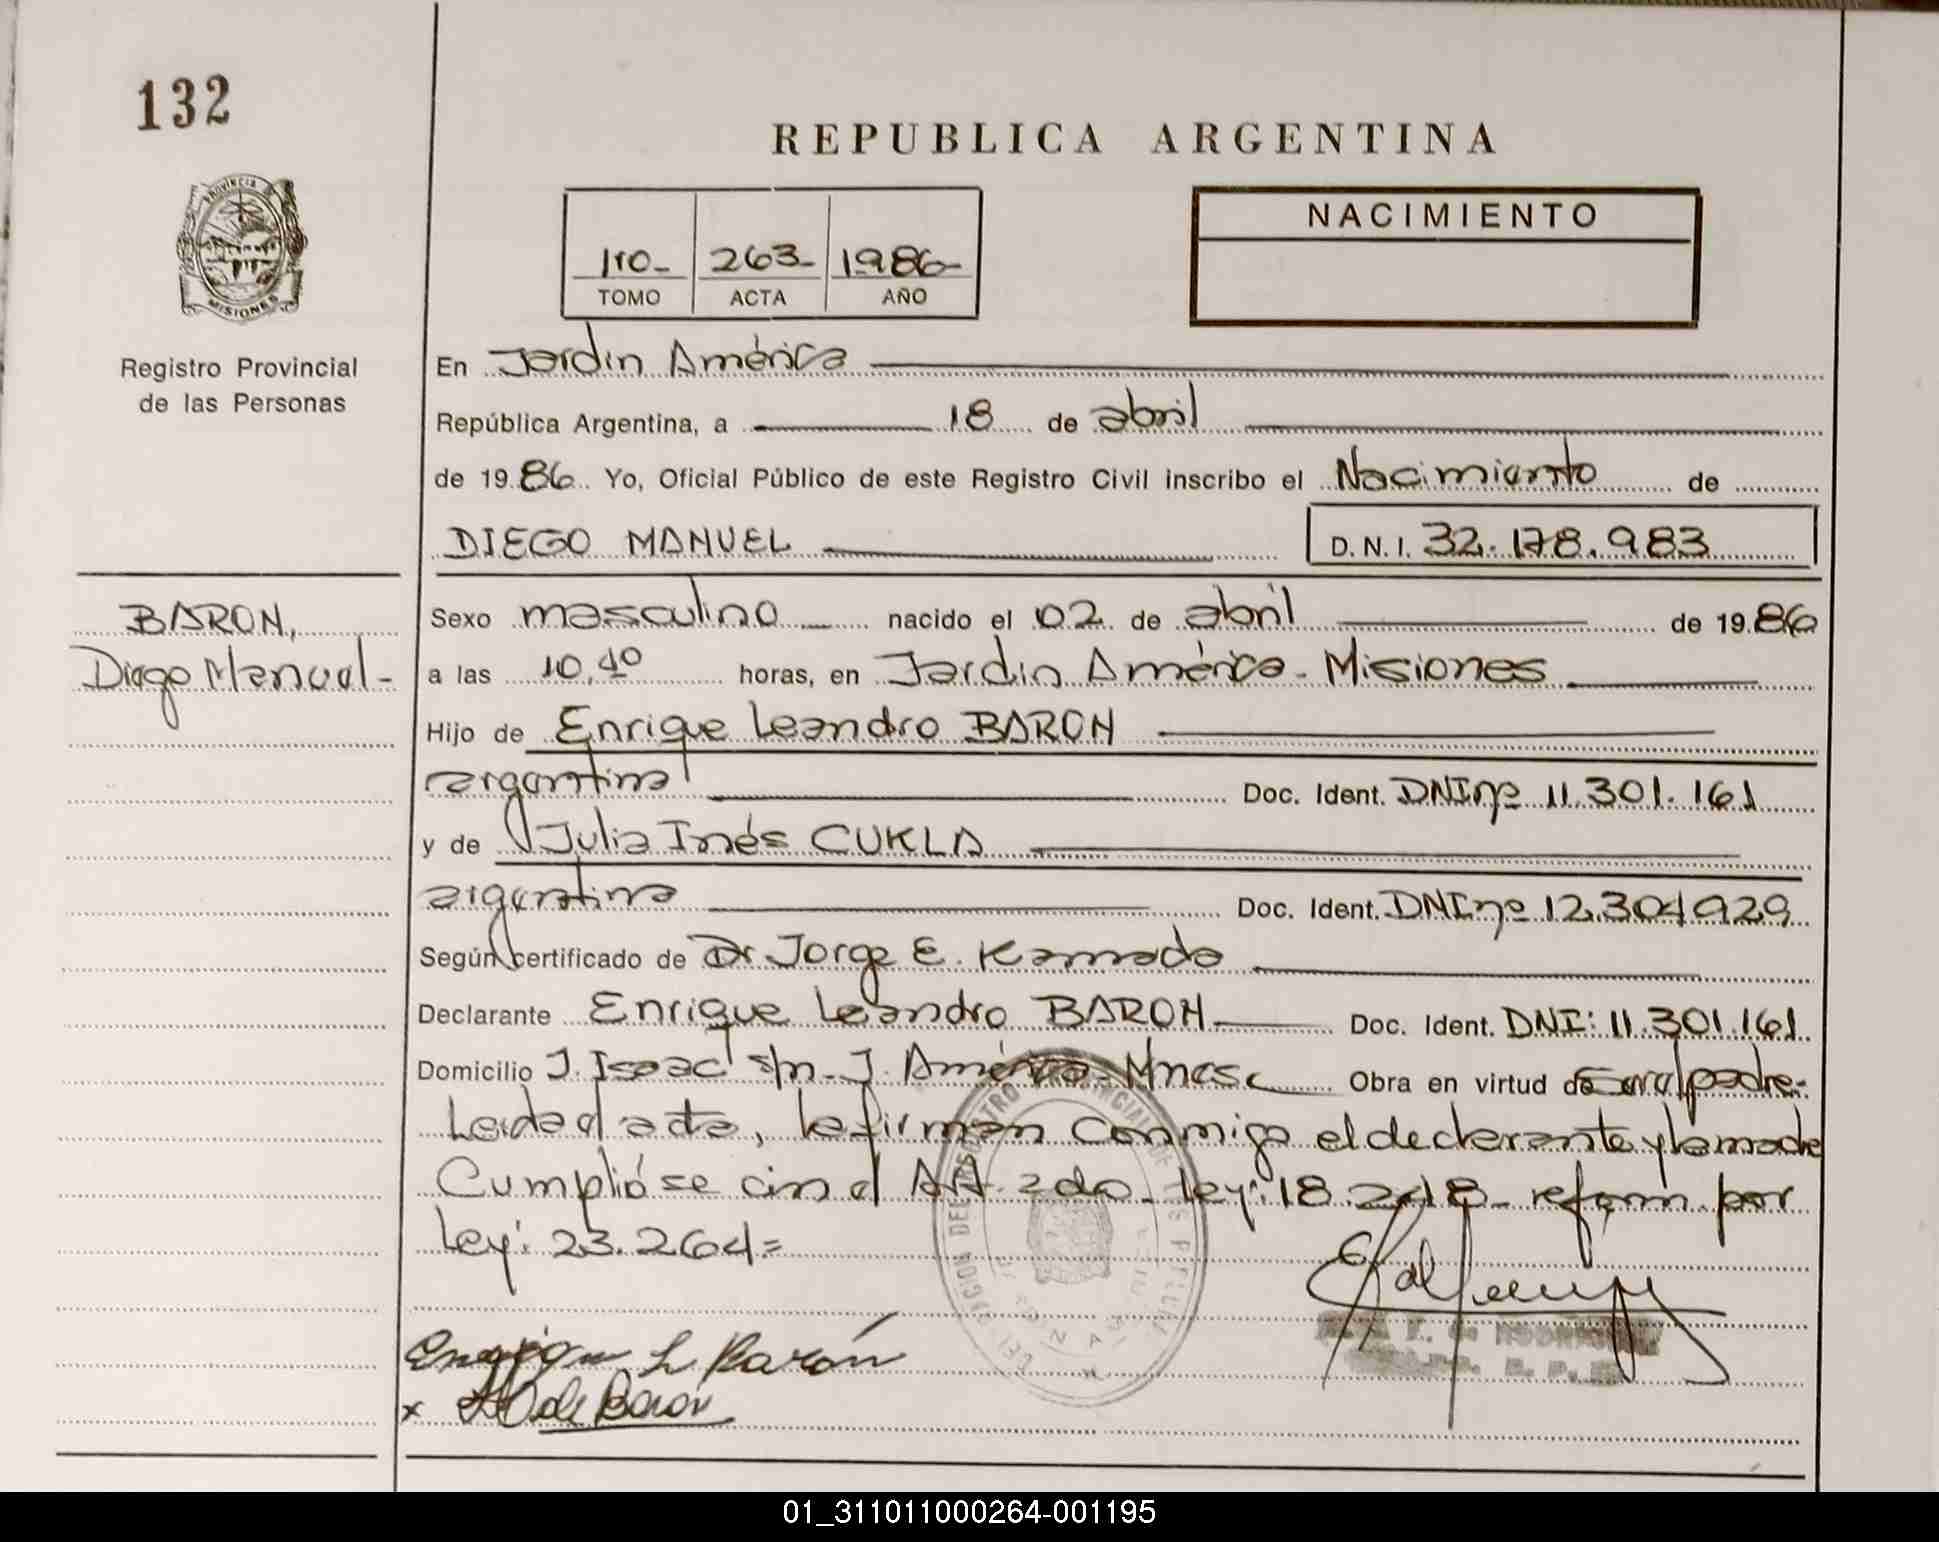 132
REPUBLICA ARGENTINA
PROVINCIA
MISIONES
Registro Provincial
de las Personas
1ro- 263- 1986-
TOMO ACTA AÑO
NACIMIENTO
En Jardin América
República Argentina, a 18 de abril
de 1986 Yo, Oficial Público de este Registro Civil inscribo el Nacimiento de
DIEGO MANUEL D.N.I. 32.178.983
BARON,
Diego Manuel-
Sexo masculino nacido el 02 de abril de 1986
a las 10,40 horas, en Jardin América - Misiones
Hijo de Enrique Leandro BARON
argentina Doc. Ident. DNI nº 11.301.161
y de Julia Inés CUKLA
argentina Doc. Ident. DNI nº 12.304929
Según certificado de Dr Jorge E. Kamada
Declarante Enrique Leandro BARON Doc. Ident. DNI: 11.301.161
Domicilio J. Isaac s/n - J. América - Mnes Obra en virtud de padre-
Leida el acta, la firman conmigo el declarante y la madre
Cumplióse con el AA. 2do- ley: 18.248- reform. por
ley: 23.264=
Enrique L Barón
x de Barón
01_311011000264-001195